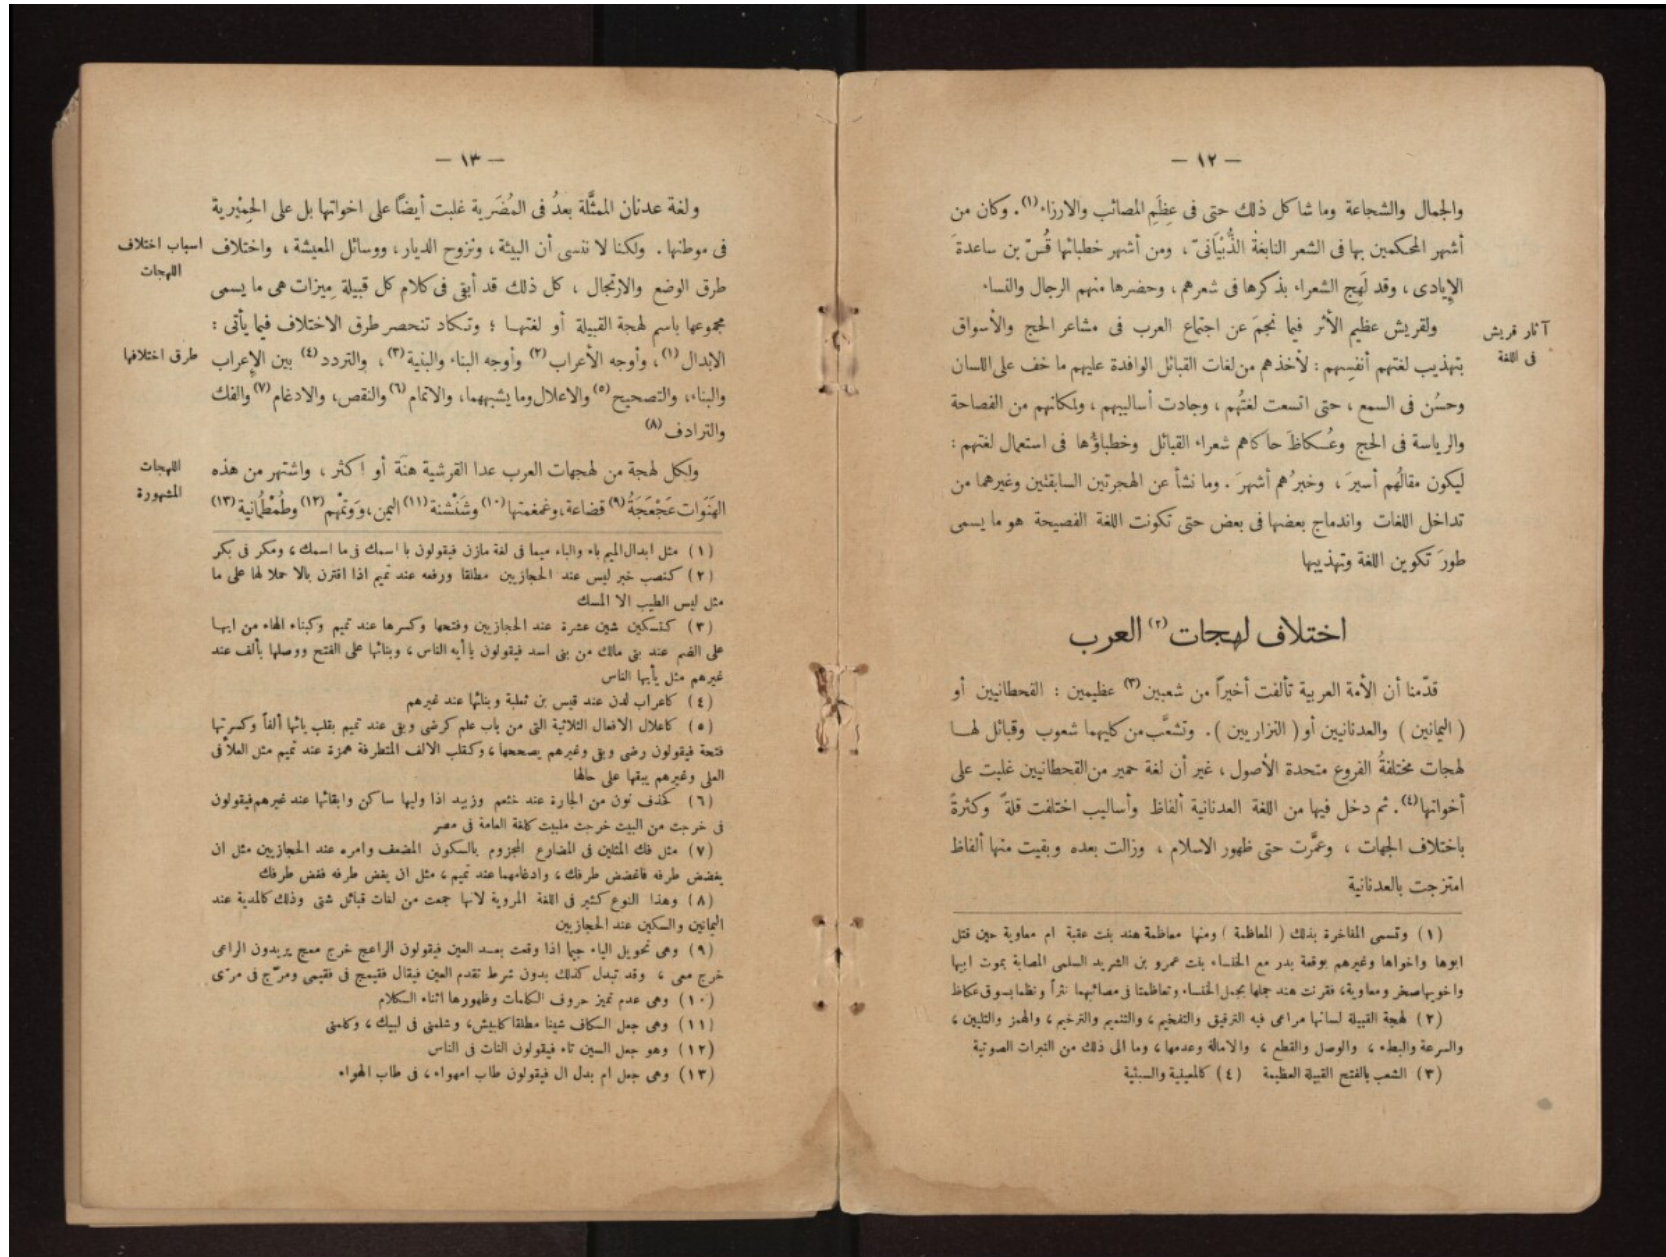 — ١٢ —
والجمال والشجاعة وما شاكل ذلك حتى فى عِظَمِ المصائب والارزاء (١). وكان من
أشهر المحكمين بها فى الشعر النابغةُ الذُّبْيَانىّ ، ومن أشهر خطبائها قُسّ بن ساعدةَ
الإيادى ، وقد لَهِج الشعراء بذكرها فى شعرهم ، وحضرها منهم الرجال والنساء
آثار قريش
فى اللغة
ولقريش عظيم الأثر فيما نجمَ عن اجتماع العرب فى مشاعر الحج والأسواق
بتهذيب لغتهم أنفسِهم : لأخذهم من لغات القبائل الوافدة عليهم ما خف على اللسان
وحسُن فى السمع ، حتى اتسعت لغتُهم ، وجادت أساليبهم ، ولمكانهم من الفصاحة
والرياسة فى الحج وعُكاظَ حاكاهم شعراء القبائل وخطباؤُها فى استعمال لغتهم :
ليكون مقالُهم أسيرَ ، وخبرُهم أشهرَ . وما نشأ عن الهجرتين السابقتين وغيرهما من
تداخل اللغات واندماج بعضها فى بعض حتى تكونت اللغة الفصيحة هو ما يسمى
طورَ تكوين اللغة وتهذيبها
اختلاف لهجات (٢) العرب
قدّمنا أن الأمة العربية تألفت أخيراً من شعبين (٣) عظيمين : القحطانيين أو
( اليمانين ) والعدنانيين أو ( النزاريين ) . وتشعَّب من كليهما شعوب وقبائل لهـا
لهجات مختلفةُ الفروع متحدة الأصول ، غير أن لغة حمير من القحطانيين غلبت على
أخواتها (٤). ثم دخل فيها من اللغة العدنانية ألفاظ وأساليب اختلفت قلةً وكثرةً
باختلاف الجهات ، وعمَّرت حتى ظهور الاسلام ، وزالت بعده وبقيت منها ألفاظ
امتزجت بالعدنانية
(١) وتسمى المفاخرة بذلك ( المعاظمة ) ومنها معاظمة هند بنت عقبة ام معاوية حين قتل
ابوها واخواها وغيرهم بوقعة بدر مع الخنساء بنت عمرو بن الشريد السلمى المصابة بموت ابيها
واخويها صخر ومعاوية، فقرنت هند جملها بجمل الخنساء وتعاظمتا فى مصائبهما نثراً ونظما بسوق عكاظ
(٢) لهجة القبيلة لسانها مراعى فيه الترقيق والتفخيم ، والتتميم والترخيم ، والهمز والتليين ،
والسرعة والبطء ، والوصل والقطع ، والامالة وعدمها ، وما الى ذلك من النبرات الصوتية
(٣) الشعب بالفتح القبيلة العظيمة (٤) كالمعينية والسبئية
— ١٣ —
ولغة عدنان الممثَّلة بعدُ فى المُضَرية غلبت أيضاً على اخواتها بل على الحِمْيرية
فى موطنها . ولكنا لا ننسى أن البيئة ، ونزوح الديار ، ووسائل المعيشة ، واختلاف
اسباب اختلاف
اللهجات
طرق الوضع والارتجال ، كل ذلك قد أبقى فى كلام كل قبيلة مِيزات هى ما يسمى
مجموعها باسم لهجة القبيلة أو لغتهـا ؛ وتـكاد تنحصر طرق الاختلاف فيما يأتى :
الابدال (١) ، وأوجه الأعراب (٢) وأوجه البناء والبنية (٣) ، والتردد (٤) بين الإعراب
طرق اختلافها
والبناء، والتصحيح (٥) والاعلال وما يشبههما، والاتمام (٦) والنقص، والادغام (٧) والفك
والترادف (٨)
ولكل لهجة من لهجات العرب عدا القرشية هَنَة أو اكثر ، واشتهر من هذه
اللهجات
المشهورة
الهَنَوات عَجْعَجَةُ (٩) قضاعة، وغمغمتها (١٠) وشَنْشنة (١١) اليمن، وَوتْهم (١٢) وطُمْطُمانية (١٣)
(١) مثل ابدال الميم باء والباء ميما فى لغة مازن فيقولون با اسمك فى ما اسمك ، ومكر فى بكر
(٢) كنصب خبر ليس عند الحجازيين مطلقا ورفعه عند تميم اذا اقترن بالا حملا لها على ما
مثل ليس الطيب الا المسك
(٣) كتسكين شين عشرة عند الحجازيين وفتحها وكسرها عند تميم وكبناء الهاء من ايهـا
على الضم عند بنى مالك من بنى اسد فيقولون يا أيه الناس ، وبنائها على الفتح ووصلها بألف عند
غيرهم مثل يأيها الناس
(٤) كاعراب لدن عند قيس بن ثعلبة وبنائها عند غيرهم
(٥) كاعلال الافعال الثلاثية التى من باب علم كرضى وبقى عند تميم بقلب يائها ألفاً وكسرتها
فتحة فيقولون رضى وبقى وغيرهم يصححها ، وكقلب الالف المتطرفة همزة عند تميم مثل العلأ فى
العلى وغيرهم يبقها على حالها
(٦) كحذف نون من الجارة عند خثعم وزبيد اذا وليها ساكن وابقائها عند غيرهم فيقولون
فى خرجت من البيت خرجت ملبيت كلغة العامة فى مصر
(٧) مثل فك المثلين فى المضارع المجزوم بالسكون المضعف وامره عند الحجازيين مثل ان
يغضض طرفه فاغضض طرفك ، وادغامهما عند تميم ، مثل ان يغض طرفه فغض طرفك
(٨) وهذا النوع كثير فى اللغة المروية لانها جمعت من لغات قبائل شتى وذلك كالمدية عند
اليمانين والسكين عند الحجازيين
(٩) وهى تحويل الياء جيما اذا وقعت بعـد العين فيقولون الراعج خرج معج يريدون الراعى
خرج معى ، وقد تبدل كذلك بدون شرط تقدم العين فيقال فقيمج فى فقيمى ومرّج فى مرّى
(١٠) وهى عدم تميز حروف الكلمات وظهورها اثناء الـكلام
(١١) وهى جعل الـكاف شينا مطلقا كلبيش، وشلمنى فى لبيك ، وكلمنى
(١٢) وهو جعل السين تاء فيقولون النات فى الناس
(١٣) وهى جعل ام بدل ال فيقولون طاب امهواء ، فى طاب الهواء